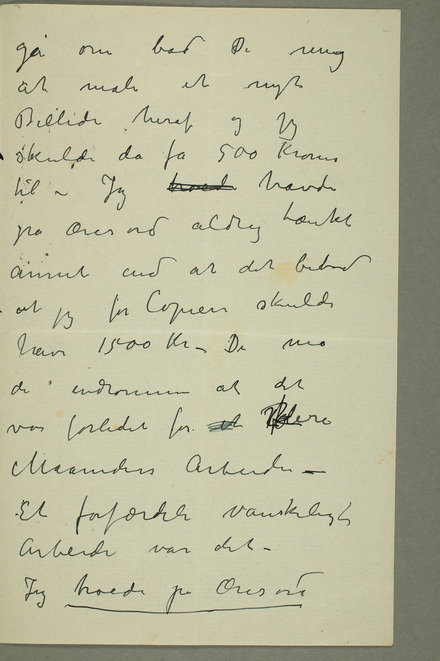 gå om bad De mig
at male et nyt
Billede heraf og jeg
skulde da få 500 Kroner
til – Jeg troede havde
på Æresord aldrig tænkt
annet end at det betød
at jeg for Copien skulde
have 1500 Kr – De må
da indrømme at det
var forledet for et flere
Maaneders Arbeide –
Et forfærdeligt vanskeligt
Arbeide var det –
Jeg troede på Æresord